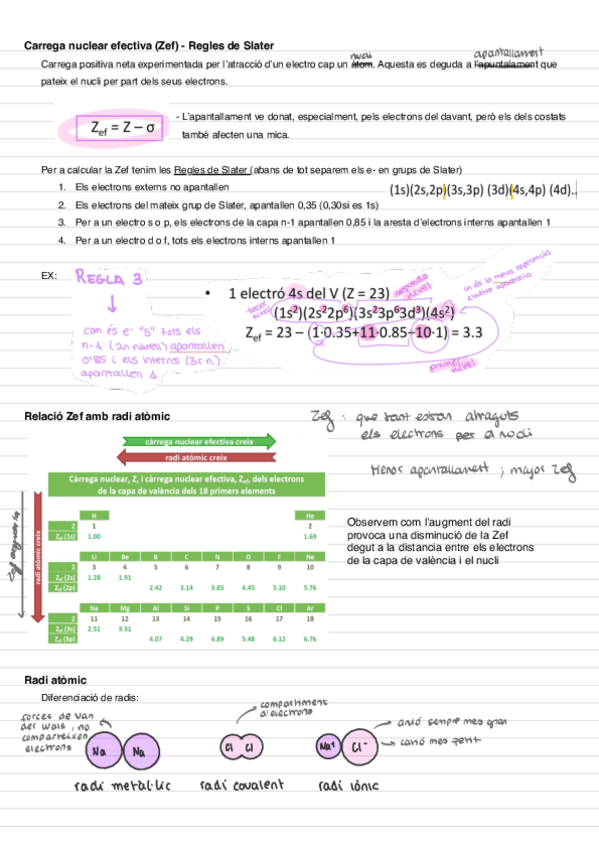 Carrega nuclear efectiva (Zef) - Regles de Slater
nucli
apantallament
Carrega positiva neta experimentada per l'atracció d'un electro cap un àtom. Aquesta es deguda a l'apuntalament que
pateix el nucli per part dels seus electrons.
Zef = Z – σ
- L'apantallament ve donat, especialment, pels electrons del davant, però els dels costats
també afecten una mica.
Per a calcular la Zef tenim les Regles de Slater (abans de tot separem els e- en grups de Slater)
1. Els electrons externs no apantallen
(1s)(2s,2p)(3s,3p) (3d)(4s,4p) (4d)..
2. Els electrons del mateix grup de Slater, apantallen 0,35 (0,30si es 1s)
3. Per a un electro s o p, els electrons de la capa n-1 apantallen 0,85 i la aresta d'electrons interns apantallen 1
4. Per a un electro d o f, tots els electrons interns apantallen 1
EX:
REGLA 3
com és e- "s" tots els
n-1 (2n nivell) apantallen
0'85 i els interns (3r n.)
apantallen 1
• 1 electró 4s del V (Z = 23)
segundo nivel
un és la meva referencia
tercer nivel
(1s²)(2s²2p⁶)(3s²3p⁶3d³)(4s²)
Zef = 23 – (1·0.35+11·0.85–10·1) = 3.3
primer nivel
Relació Zef amb radi atòmic
Zef : que tant estran atraguts
els electrons per el nucli
Menor apantallament ; major Zef
càrrega nuclear efectiva creix
radi atòmic creix
Càrrega nuclear, Z, i càrrega nuclear efectiva, Zef, dels electrons
de la capa de valència dels 18 primers elements
radi atòmic creix
H He
Z 1 2
Zef (1s) 1.00 1.69
Li Be B C N O F Ne
Z 3 4 5 6 7 8 9 10
Zef (2s) 1.28 1.91
Zef (2p) 2.42 3.14 3.83 4.45 5.10 5.76
Na Mg Al Si P S Cl Ar
Z 11 12 13 14 15 16 17 18
Zef (3s) 2.51 3.31
Zef (3p) 4.07 4.29 4.89 5.48 6.12 6.76
Observem com l'augment del radi
provoca una disminució de la Zef
degut a la distancia entre els electrons
de la capa de valència i el nucli
Radi atòmic
Diferenciació de radis:
forces de van
der Wals, no
comparteixen
electrons
Na Na
radi metàl·lic
compartiment
d'electrons
Cl Cl
radi covalent
anió sempre mes gran
catió mes petit
Na⁺ Cl⁻
radi iònic